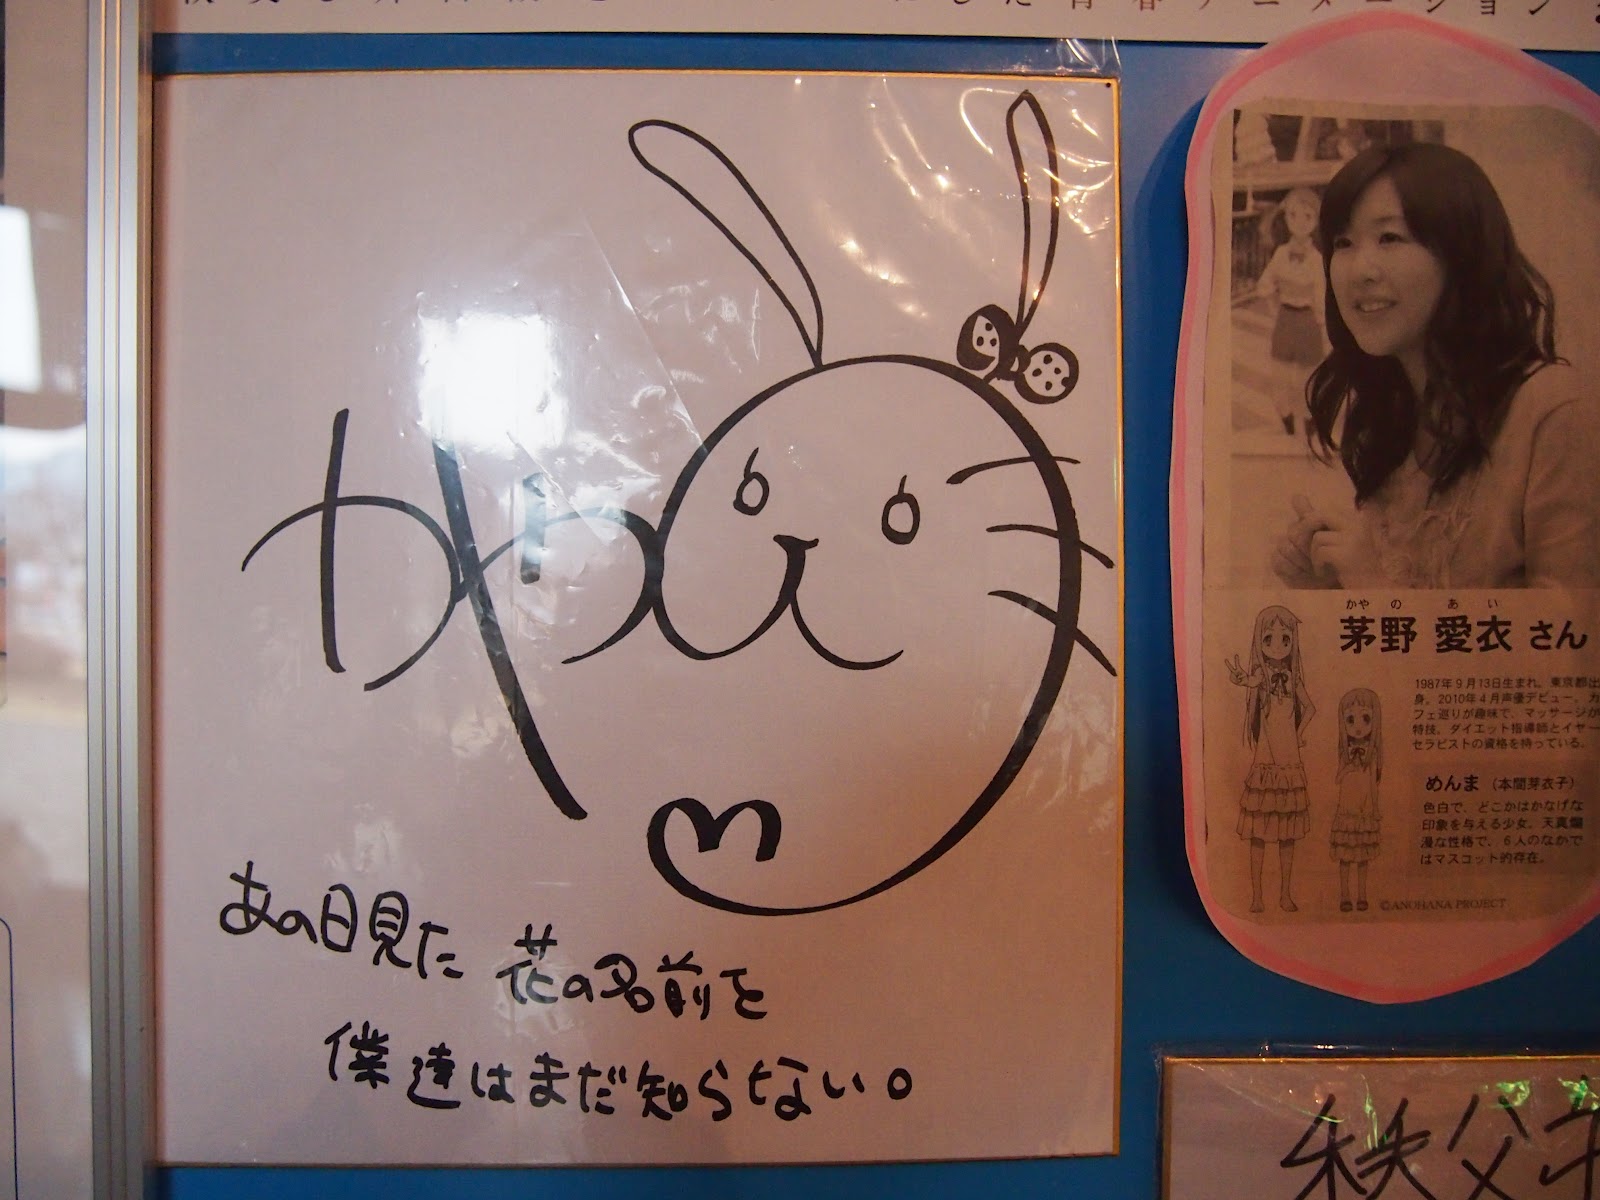 かやの
あの日見た 花の名前を
僕達はまだ知らない。
かやの あい
茅野 愛衣 さん
1987年9月13日生まれ。東京都出
身。2010年4月声優デビュー。カ
フェ巡りが趣味で、マッサージが
特技。ダイエット指導師とイヤー
セラピストの資格を持っている。
めんま（本間芽衣子）
色白で、どこかはかなげな
印象を与える少女。天真爛
漫な性格で、6人のなかで
はマスコット的存在。
©ANOHANA PROJECT
秩父